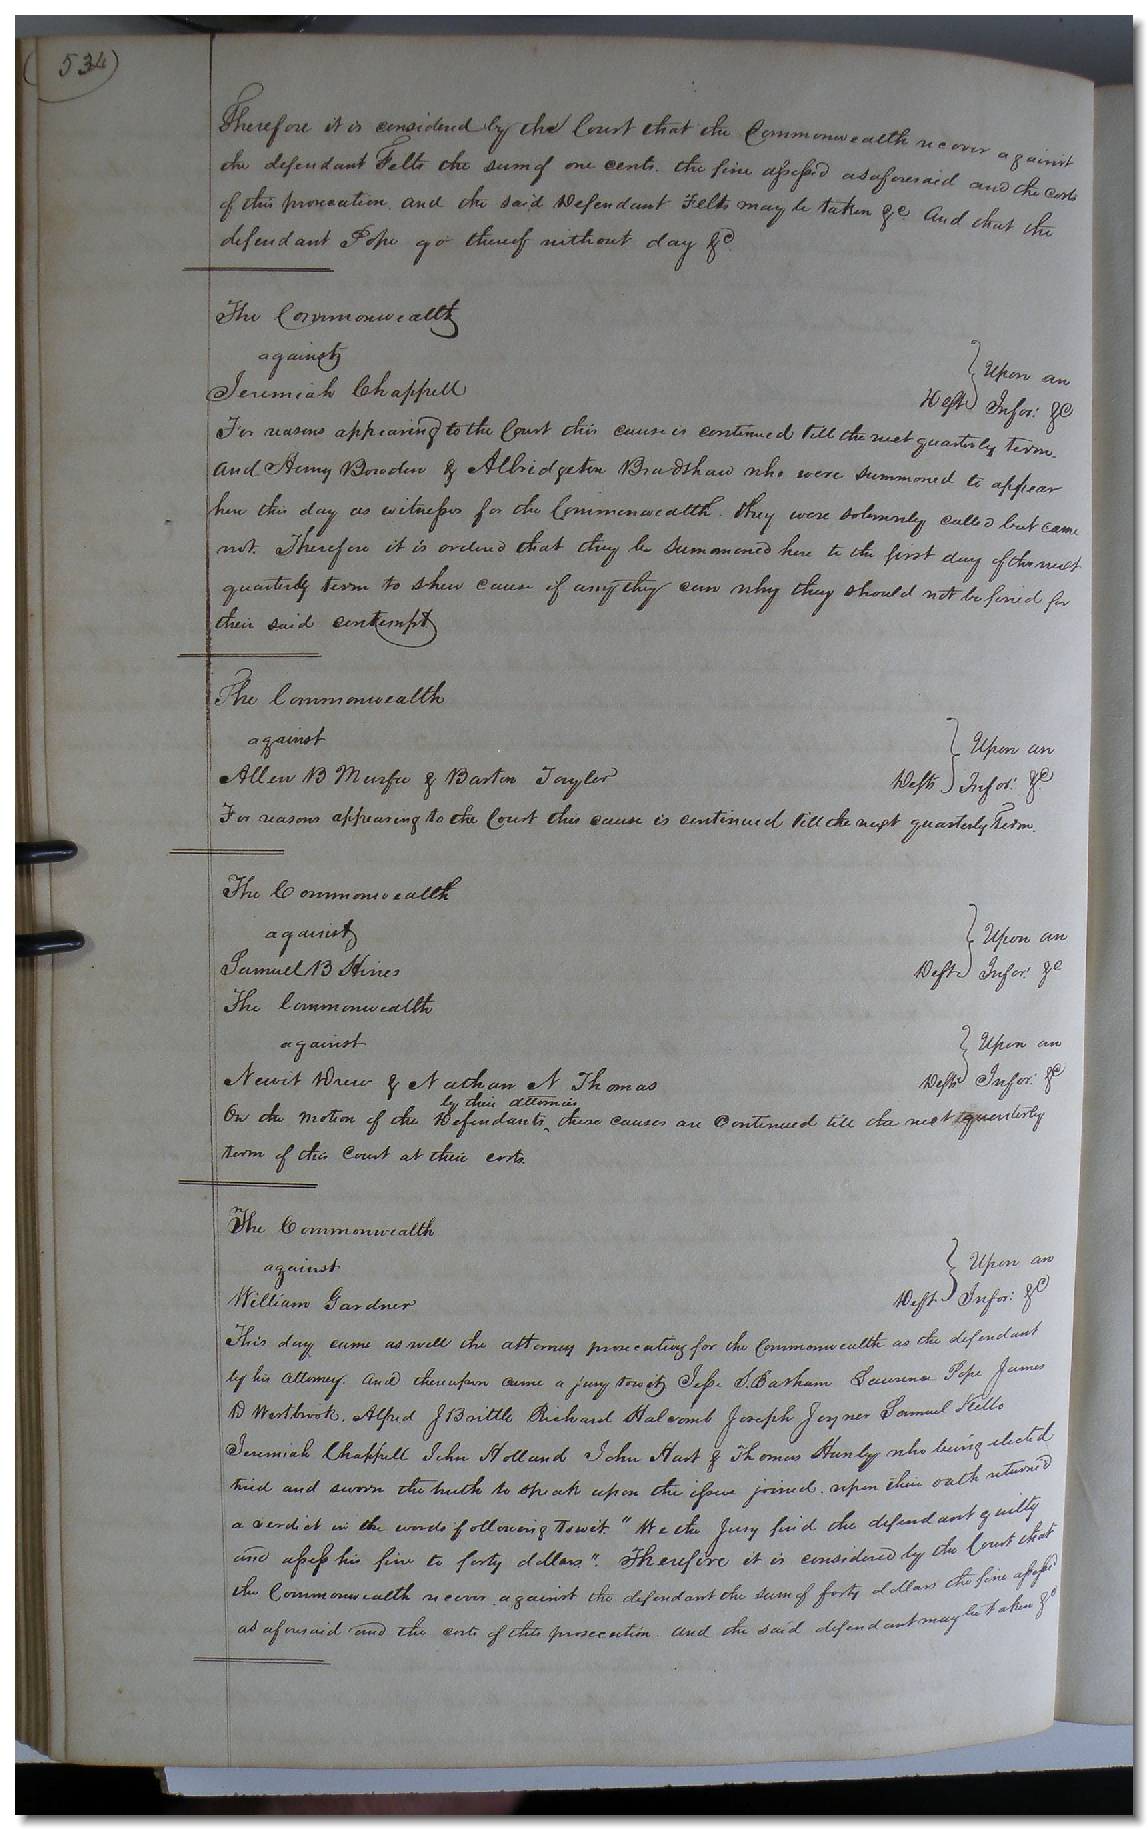 534
Therefore it is considered by the Court that the Commonwealth recover against
the defendant Felts the sum of one cents. the fine assessed as aforesaid and the costs
of this prosecution. and the said Defendant Felts may be taken &c And that the
defendant Pope go thereof without day &c
The Commonwealth
against
Upon an
Jeremiah Chappell
Deft Infor: &c
For reasons appearing to the Court this cause is continued till the next quarterly term.
And Henry Bowden & Albridgeton Bradshaw who were summoned to appear
here this day as witnesses for the Commonwealth. they were solemnly called but came
not. Therefore it is ordered that they be summoned here to the first day of the next
quarterly term to shew cause if any they can why they should not be fined for
their said contempt
The Commonwealth
against
Upon an
Allen B Murfee & Barton Taylor
Defts Infor: &c
For reasons appearing to the Court this cause is continued till the next quarterly Term.
The Commonwealth
against
Upon an
Samuel B Hines
Deft Infor: &c
The Commonwealth
against
Upon an
Newit Drew & Nathan N Thomas
Defts Infor: &c
by their attornies
On the motion of the Defendants, these causes are continued till the next quarterly
term of this Court at their costs.
The Commonwealth
against
Upon an
William Gardner
Deft Infor: &c
This day came as well the attorney prosecuting for the Commonwealth as the defendant
by his attorney. And thereupon came a jury towit, Jesse S. Barham Lawrence Pope James
D Westbrook. Alfred J Brittle Richard Halcomb Joseph Joyner Samuel Kello
Jeremiah Chappell John Holland John Hart & Thomas Hunly who being elected
tried and sworn the truth to speak upon the issue joined. upon their oath returned
a verdict in the words following towit. "We the Jury find the defendant guilty
and assess his fine to forty dollars". Therefore it is considered by the Court that
the Commonwealth recover against the defendant the sum of forty dollars the fine assessed
as aforesaid and the costs of this prosecution. And the said defendant may be taken &c